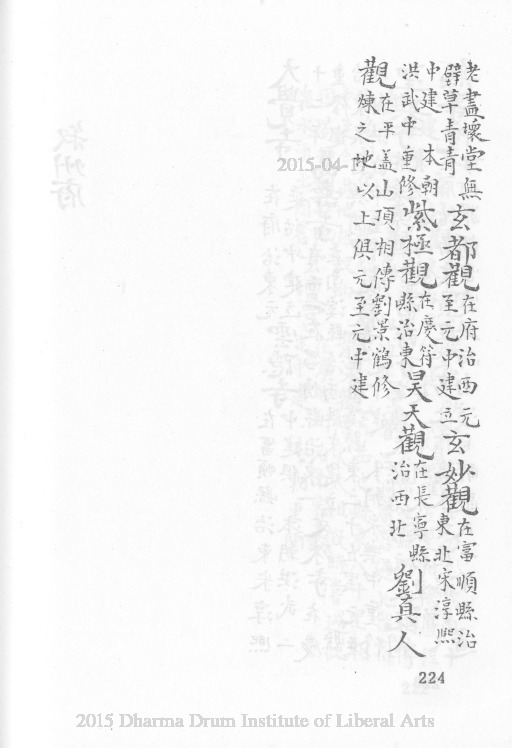 老盡壞堂無壁草青青玄都觀在府治西元至元中建立玄妙觀在富順縣治東北宋淳熙
中建 本朝洪武中重修紫極觀在慶符縣治東昊天觀在長寧縣治西北劉真人
觀在平盖山頂相傳劉景鶴修煉之地以上俱元至元中建
224
2015 Dharma Drum Institute of Liberal Arts